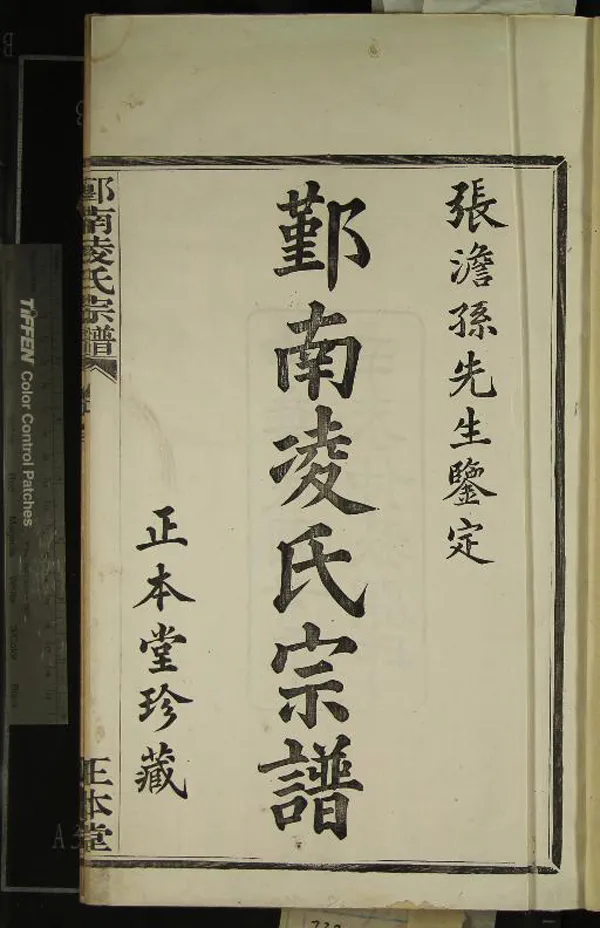 張澹孫先生鑒定
鄞南凌氏宗譜
正本堂珍藏
鄞南凌氏宗譜
正本堂
TIFFEN Color Control Patches